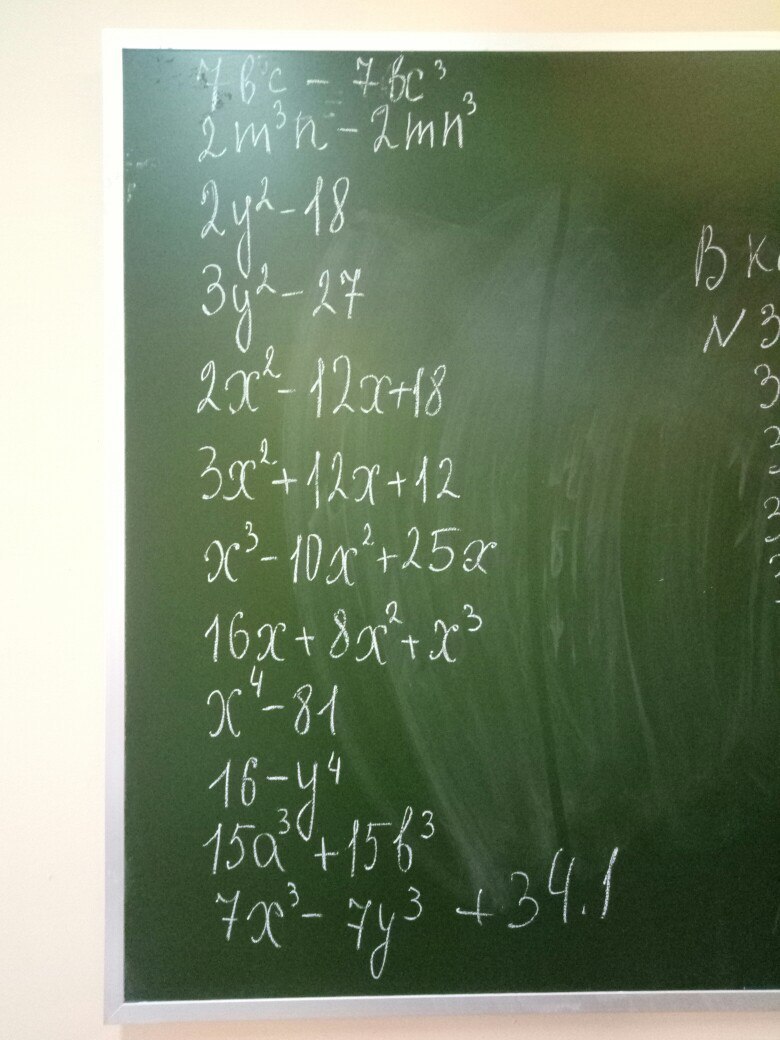 7вc - 7вc³
2m³n - 2mn³
2y² - 18
3y² - 27
2x² - 12x + 18
3x² + 12x + 12
x³ - 10x² + 25x
16x + 8x² + x³
x⁴ - 81
16 - y⁴
15a³ + 15b³
7x³ - 7y³ + 34.1
В
N 3
3
3
3